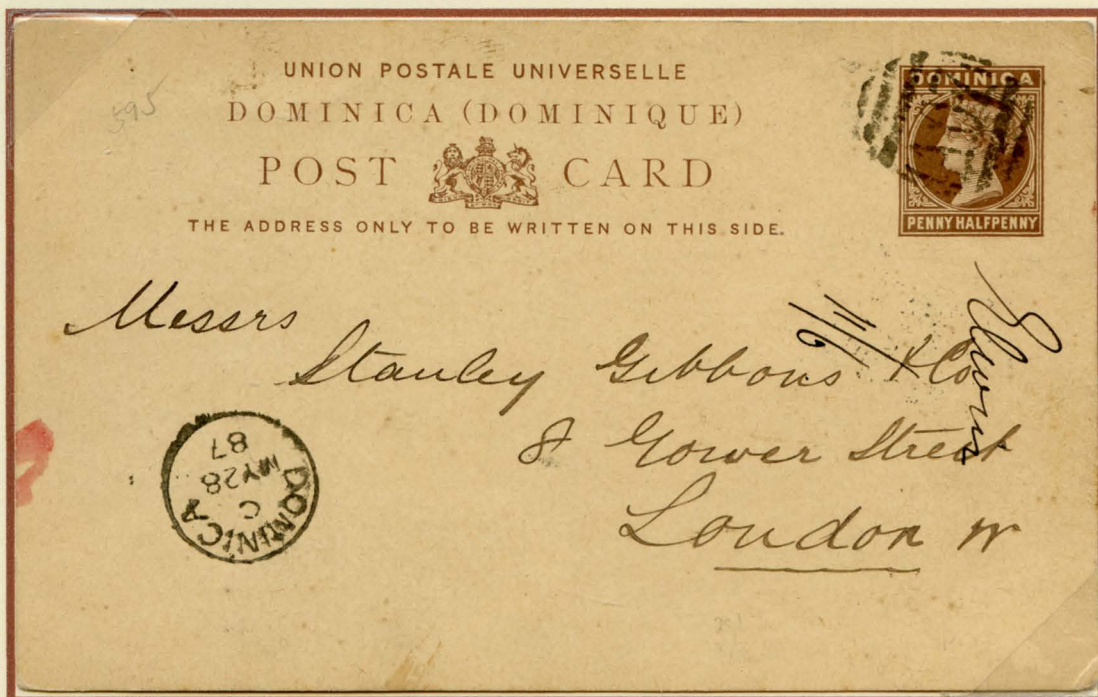 UNION POSTALE UNIVERSELLE
DOMINICA (DOMINIQUE)
POST CARD
THE ADDRESS ONLY TO BE WRITTEN ON THIS SIDE.
DOMINICA
PENNY HALFPENNY
595
Messrs
Stanley Gibbons & Co
8 Gower Street
London W
11/6
DOMINICA
C
MY 28
87